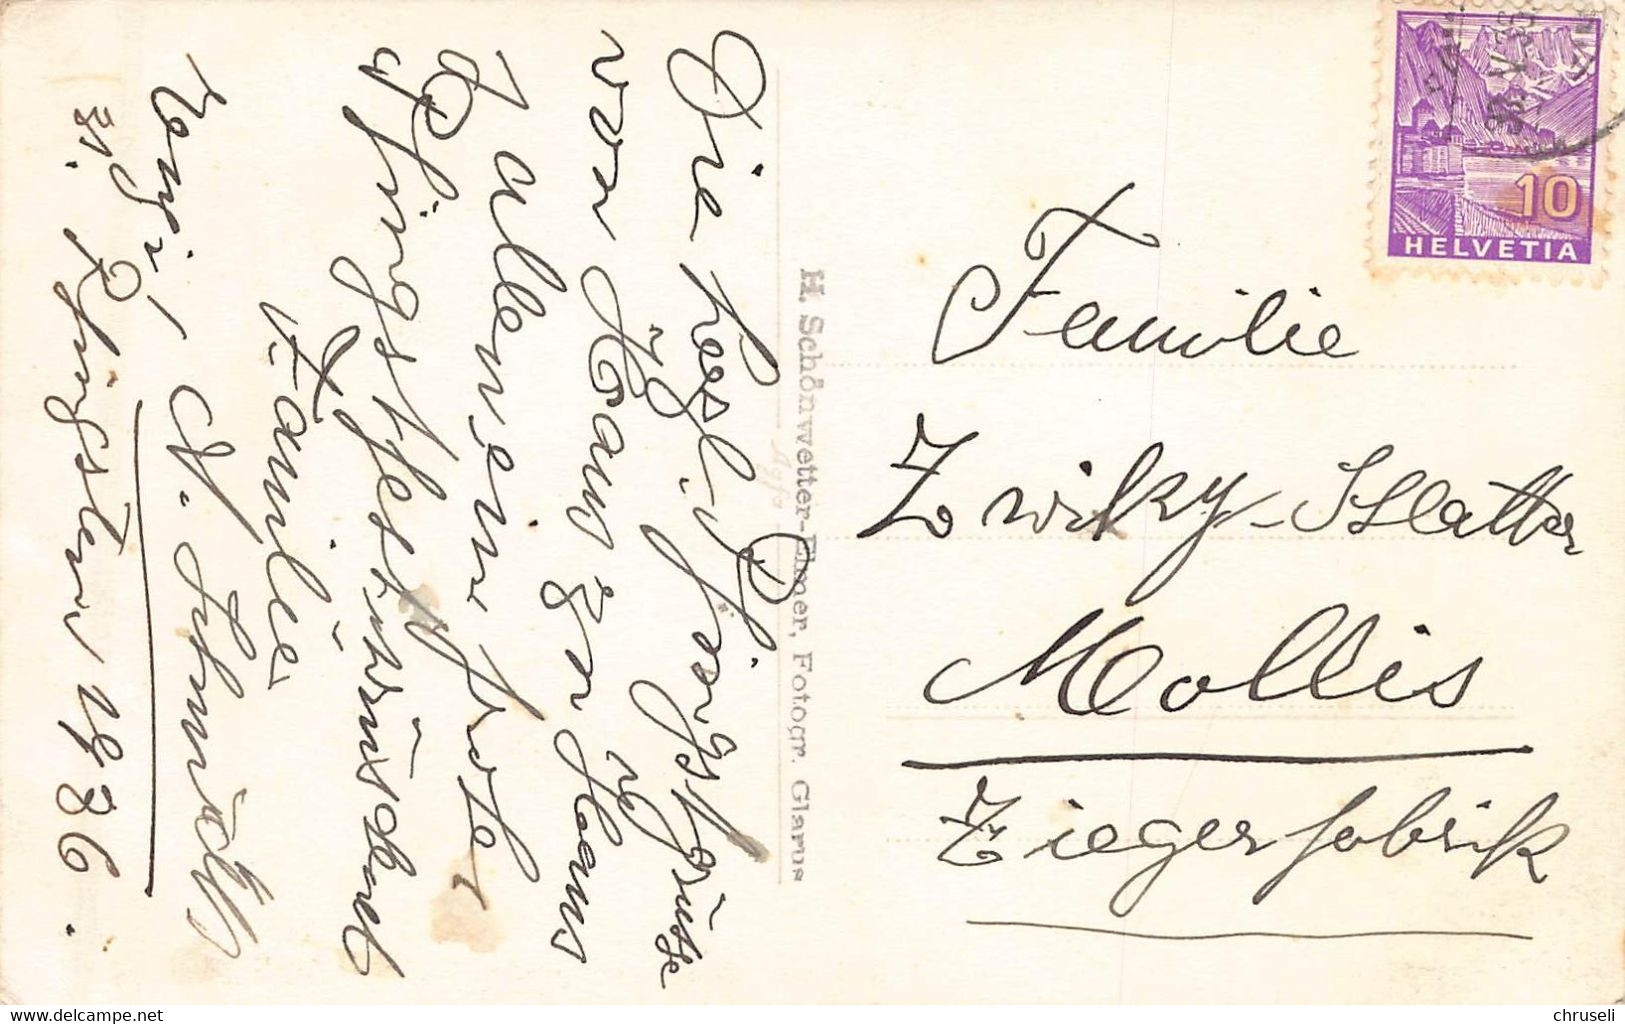 Die herzl. Pfingstgrüsse
von Haus zu Haus
allen eine frohe
Pfingsten wünschend
Familie
N. Schmidt
Pfingsten 1936.
H. Schönwetter-Elmer, Fotogr. Glarus
HELVETIA
10
Familie
Zwiky-Slatter
Mollis
Ziegerfabrik
www.delcampe.net
chruseli